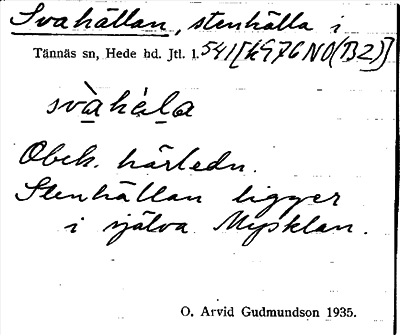 Svahällan, stenhälla i
Tännäs sn, Hede hd. Jtl. 1.541[h976NO(B2)]
svàhèla
Obek. härledn.
Stenhällan ligger
i själva Mysklan.
O. Arvid Gudmundson 1935.